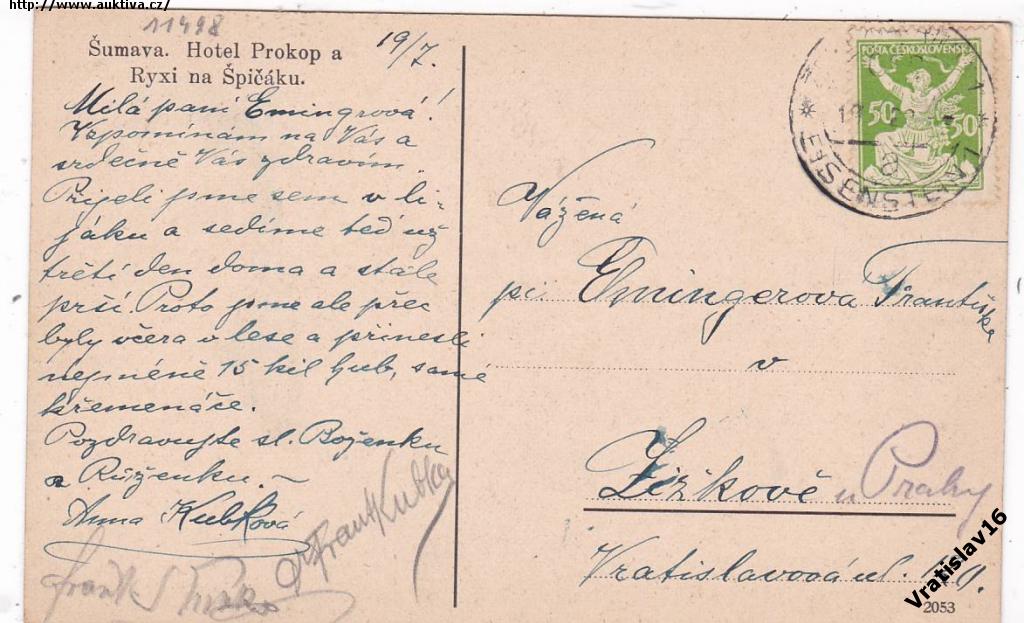 http://www.auktiva.cz/
11498
Šumava. Hotel Prokop a
Ryxi na Špičáku.
19/7.
Milá paní Emingrová!
Vzpomínám na Vás a
srdečně Vás zdravím.
Přijeli jsme sem v li-
jáku a sedíme teď už
třetí den doma a stále
prší. Proto jsme ale přec
byly včera v lese a přinesli
nejméně 15 kil hub, samé
křemenáče.
Pozdravujte sl. Boženku
a Růženku. –
Anna Kubková
Frant Kubka
POŠTA ČESKOSLOVENSKÁ
50 50
EISENSTEIN
Vážená
pí. Emingerova Františka
v
Žižkově u Prahy
Vratislavova ul.
Vratislav16
2053